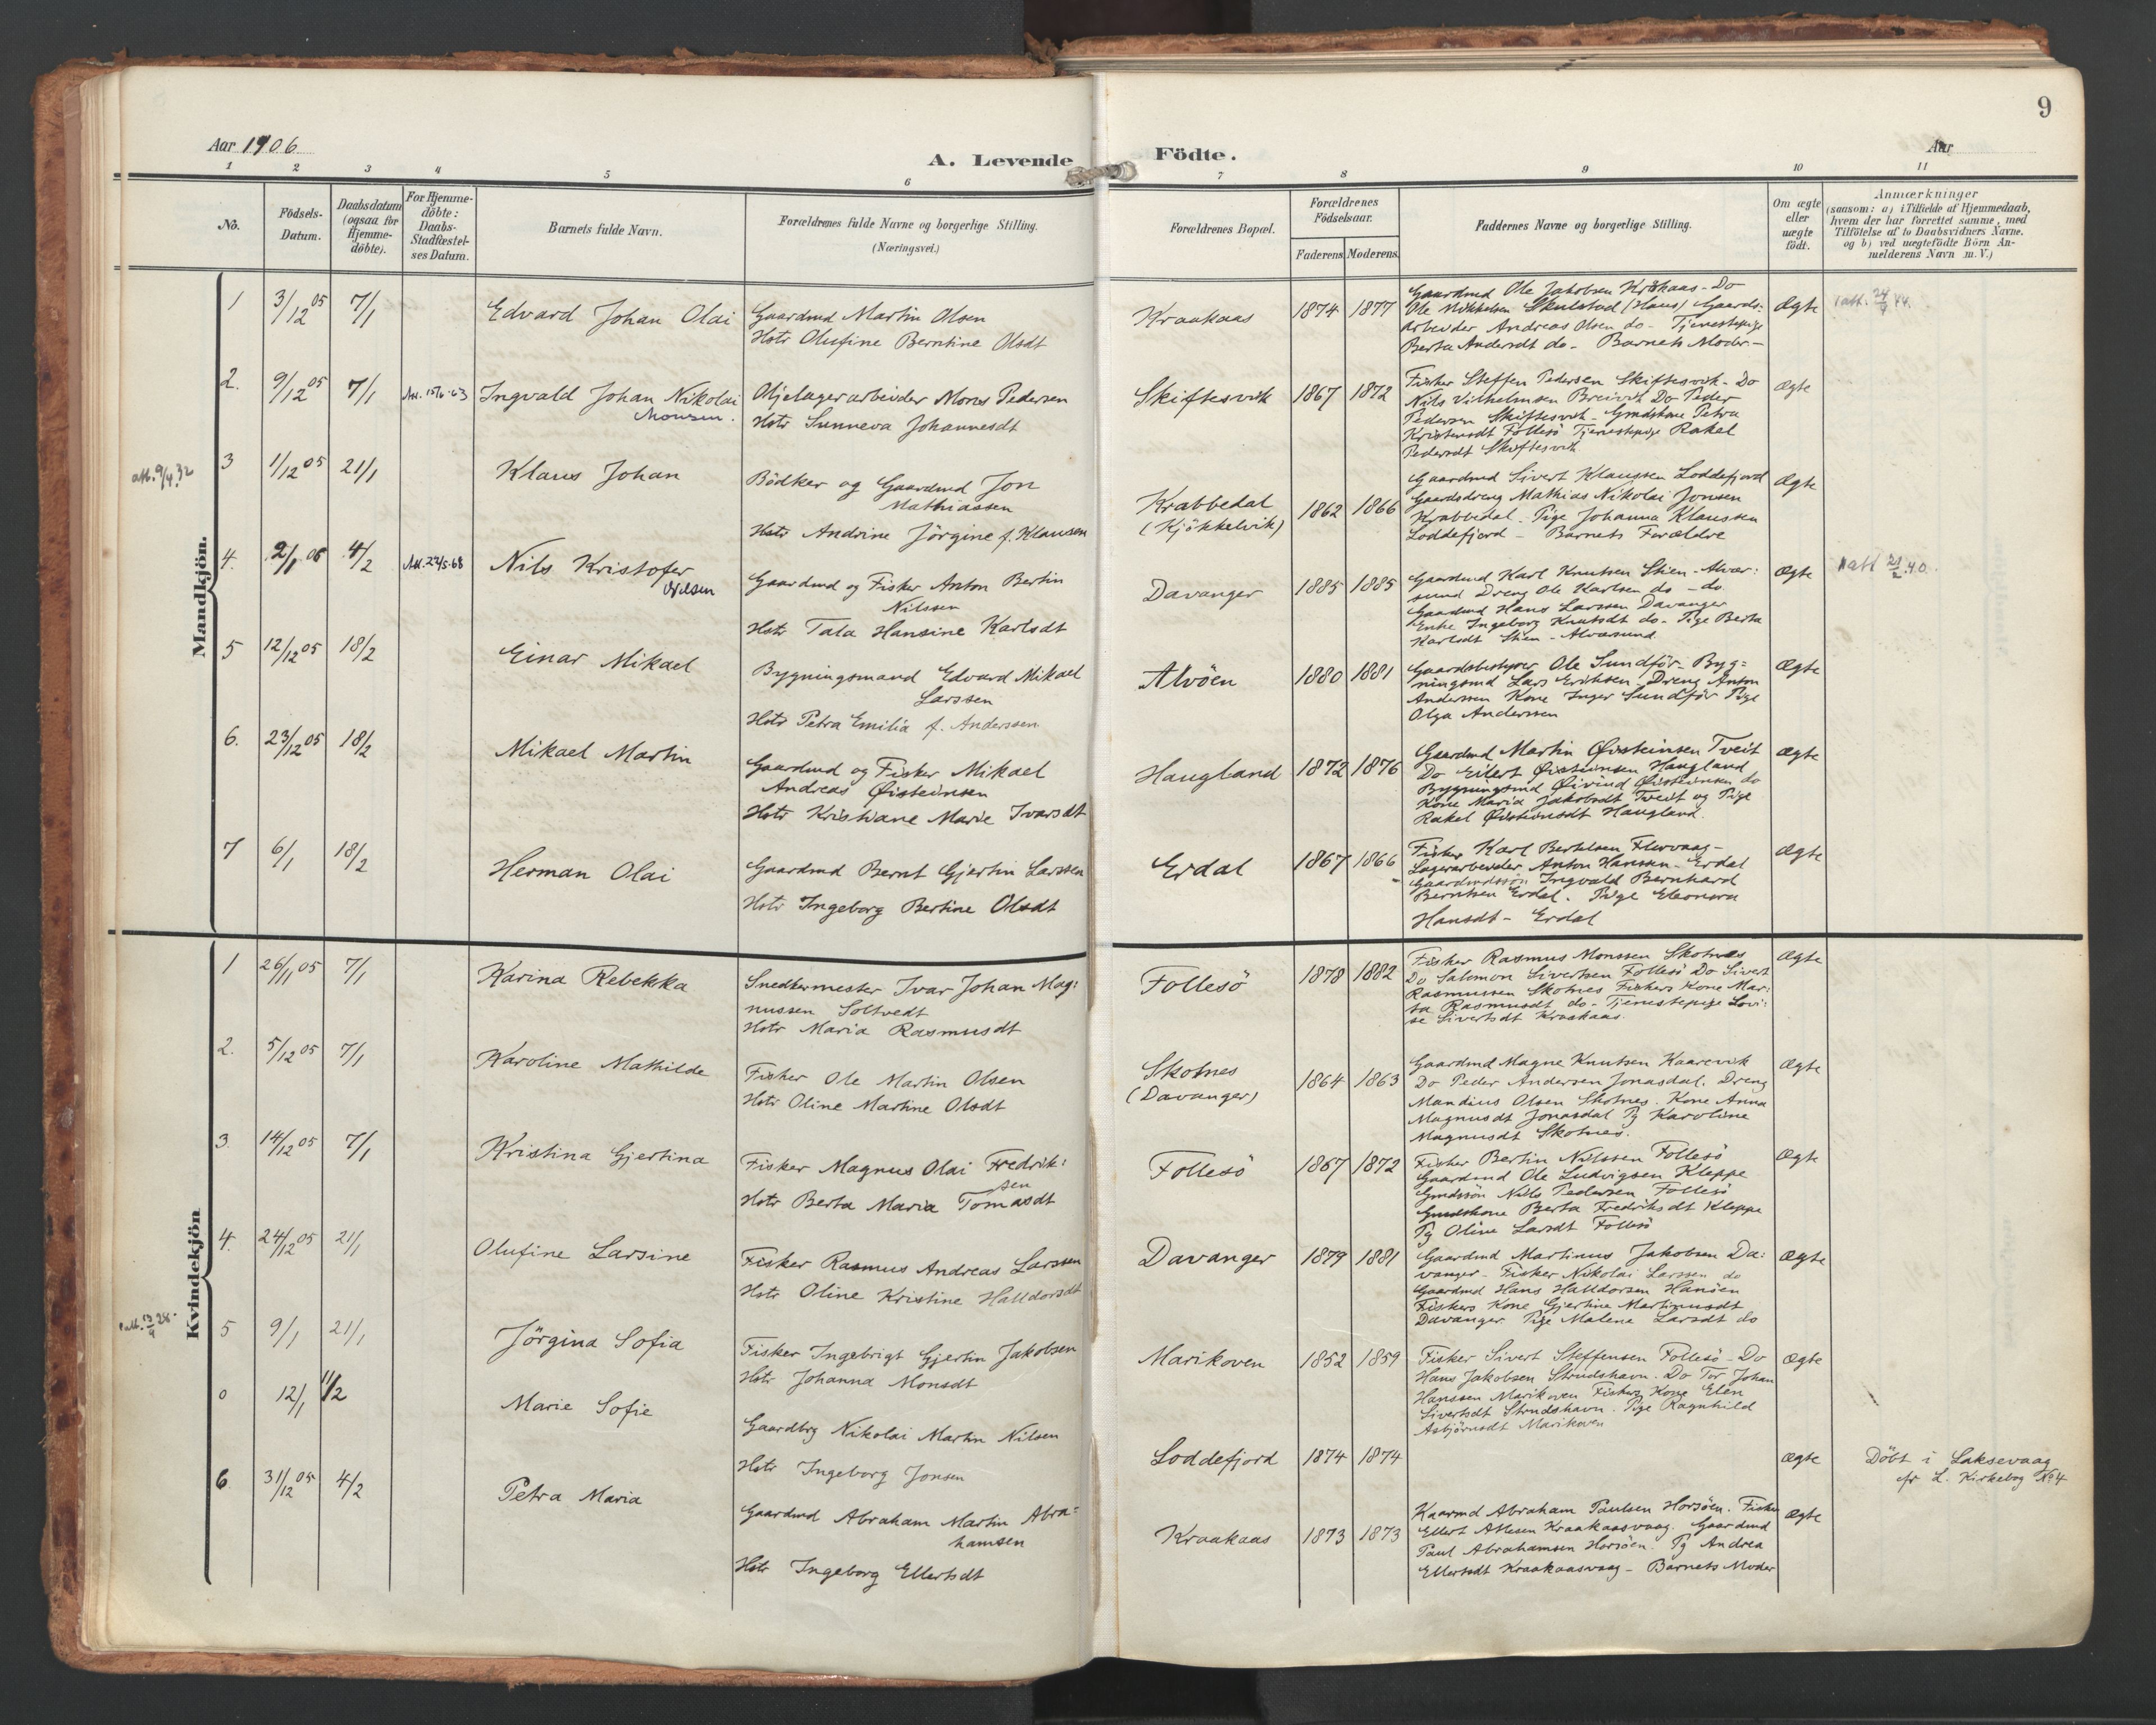 Aar 1906
A. Levende
1 2 3 4 5 6
No.
Födsels-
Datum.
Daabsdatum
(ogsaa for
Hjemme-
döbte).
For Hjemme-
döbte:
Daabs-
Stadfæstel-
ses Datum.
Barnets fulde Navn.
Forældrenes fulde Navne og borgerlige Stilling.
(Næringsvei.)
Mandkjön.
1 3/12 05 7/1 Edvard Johan Olai
Gaardmd Martin Olsen
Hstr Olufine Berntine Olsdt
2. 9/12 05 7/1 Att. 15/6-63 Ingvald Johan Nikolai
Monsen.
Oljelagerarbeider Mons Pedersen
Hstr Sunneva Johannesdt
att. 9/4.32
3 1/12 05 21/1 Klaus Johan
Bödker og Gaardmd Jon
Mathiassen
Hstr Andrine Jörgine f. Klausen
4. 2/1 06 4/2 Att. 27/5-68 Nils Kristofer
Nilsen
Gaardmd og Fisker Anton Bertin
Nilssen
Hstr Tala Hansine Karlsdt
5 12/12 05 18/2 Einar Mikael
Bygningsmand Edvard Mikael
Larssen
Hstr Petra Emilia f. Anderssen
6. 23/12 05 18/2 Mikael Martin
Gaardmd og Fisker Mikael
Andreas Øisteinsen
Hstr Kristiane Marie Ivarsdt
7 6/1 18/2 Herman Olai
Gaardmd Bernt Gjertin Larssen
Hstr Ingeborg Bertine Olsdt
Kvindekjön
1 26/11 05 7/1 Karina Rebekka
Snedkermester Ivar Johan Mag:
nussen Soltvedt
Hstr Maria Rasmusdt
2. 5/12 05 7/1 Karoline Mathilde
Fisker Ole Martin Olsen
Hstr Oline Martine Olsdt
3 14/12 05 7/1 Kristina Gjertina
Fisker Magnus Olai Fredrik:
sen
Hstr Berta Maria Tomasdt
4. 24/12 05 21/1 Olufine Larsine
Fisker Rasmus Andreas Larssen
Hstr Oline Kristine Halldorsdt
5 9/1 21/1 Jörgina Sofia
Fisker Ingebrigt Gjertin Jakobsen
Hstr Johanna Monsdt
0 12/1 11/2 Marie Sofie
Gaardbrg Nikolai Martin Nilsen
Hstr Ingeborg Jonsen
6 31/12 05 4/2 Petra Maria
Gaardmd Abraham Martin Abra=
hamsen
Hstr Ingeborg Ellertsdt
9
Födte.
Aar
7 8 9 10 11
Forældrenes Bopæl.
Forældrenes
Födselsaar.
Faderens Moderens
Faddernes Navne og borgerlige Stilling.
Om ægte
eller
uægte
födt.
Anmærkninger
(saasom: a) i Tilfælde af Hjemmedaab,
hvem der har forrettet samme, med
Tilföielse af to Daabsvidners Navne.
og b) ved uægtefödte Börn An-
melderens Navn m. V.)
Kraakaas 1874 1877
Gaardmd Ole Jakobsen Kråkaas - Do
Ole Mikkelsen Skulstad (Haus) Gaards-
arbeider Andreas Olsen do - Tjenestepige
Berta Andersdt do - Barnets Moder -
Ægte
Skiftesvik 1867 1872
Fisker Steffen Pedersen Skiftesvik - Do
Nils Vilhelmsen Breivik Do Peder
Pedersen Skiftesvik - Gmdskone Petra
Kristensdt Follesö Tjenestepige Rakel
Pedersdt Skiftesvik
Ægte
Krabbedal
(Kjökkelvik)
1862 1866
Gaardmd Sivert Klaussen Loddefjord
Gaardsdreng Mathias Nikolai Jonsen
Krabbedal - Pige Johanna Klaussen
Loddefjord - Barnets Forældre
Ægte
Davanger 1885 1885
Gaardmd Karl Knutsen Stien - Alvær:
sund Dreng Ole Karlsen do - do.
Gaardmd Hans Larssen Davanger
Enke Ingeborg Knutsdt do - Pige Berta
Karlsdt Stien - Alværsund
Ægte
Alvöen 1880 1881
Gaardsbestyrer Ole Sundför - Byg=
ningsmd Lars Eriksen - Dreng Anton
Anderssen Kone Inger Sundför Pige
Olga Anderssen
Ægte
Haugland 1872 1876
Gaardmd Martin Øisteinsen Tveit
Do Eilert Øisteinsen Haugland
Bygningsmd Øivind Øisteinsen do
Kone Maria Jakobsdt Tveit og Pige
Rakel Øisteinsdt Haugland.
Ægte
Erdal 1867 1866
Fisker Karl Bertelsen Florvaag -
Lagerarbeider Anton Hanssen - Erdal
Gaardmdssön Ingvald Bernhard
Berntsen Erdal. Pige Eleonora
Hansdt - Erdal
Ægte
Follesö 1878 1882
Fisker Rasmus Monssen Skotnes
Do Salomon Sivertsen Follesö Do Sivert
Rasmussen Skotnes Fiskers Kone Mar:
ta Rasmusdt do - Tjenestepige Lovi:
se Sivertsdt Kraakaas.
Ægte
Skotnes
(Davanger)
1864 1863
Gaardmd Magne Knutsen Kaarevik
Do Peder Andersen Jonasdal. Dreng
Mandius Olsen Skotnes. Kone Anna
Magnusdt Jonasdal Pg Karoline
Magnusdt Skotnes.
Ægte
Follesö 1867 1872
Fisker Bertin Nilssen Follesö
Gaardmd Ole Ludvigsen Kleppe
Gmdssön Nils Pedersen Follesö
Gmdskone Berta Fredriksdt Kleppe
Pg Oline Larsdt Follesö
Ægte
Davanger 1879 1881
Gaardmd Martinus Jakobsen Da:
vanger - Fisker Nikolai Larssen do
Gaardmd Hans Halldorsen Hanöen
Fiskers Kone Gjertine Martinusdt
Davanger Pige Malene Larsdt do
Ægte
Marikoven 1852 1859
Fisker Sivert Steffensen Follesö - Do
Hans Jakobsen Strudshavn. Do Tor Johan
Hanssen Marikoven Fiskers Kone Elen
Sivertsdt Strudshavn. Pige Ragnhild
Asbjörnsdt Marikoven
Ægte
Loddefjord 1874 1874
Ægte
Döbt i Laksevaag
cfr L. Kirkebog No 4
Kraakaas 1873 1873
Kaarmd Abraham Paulsen Horsöen. Fisker
Ellert Atlesen Kraakaasvaag. Gaardmd
Paul Abrahamsen Horsöen. Pg Andrea
Ellertsdt Kraakaasvaag - Barnets Moder
Ægte